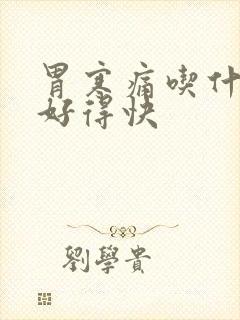 胃寒痛喫什
好得快
劉學貴